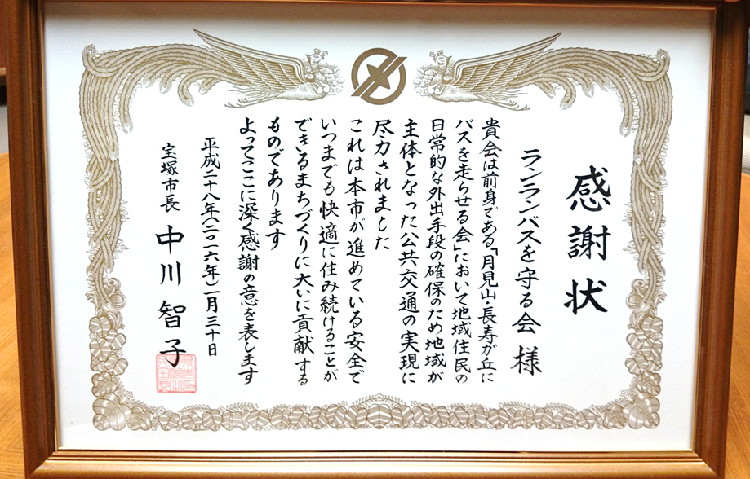 感謝状
ランランバスを守る会 様
貴会は前身である「月見山・長寿が丘に
バスを走らせる会」において地域住民の
日常的な外出手段の確保のため地域が
主体となった公共交通の実現に
尽力されました
これは本市が進めている安全で
いつまでも快適に住み続けることが
できるまちづくりに大いに貢献する
ものであります
よってここに深く感謝の意を表します
平成二十八年(二〇一六年)一月三十日
宝塚市長 中川智子